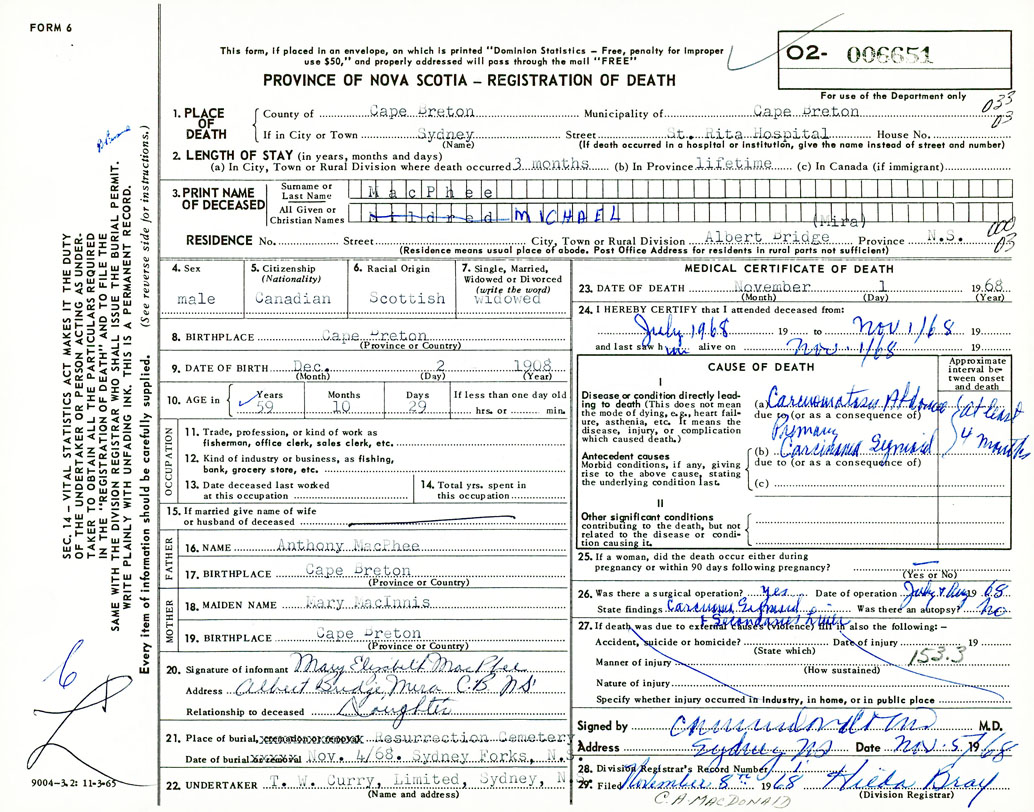 FORM 6
This form, if placed in an envelope, on which is printed "Dominion Statistics – Free, penalty for improper
use $50," and properly addressed will pass through the mail "FREE"
PROVINCE OF NOVA SCOTIA – REGISTRATION OF DEATH
02- 006651
For use of the Department only
033
03
1. PLACE OF DEATH
County of Cape Breton Municipality of Cape Breton
If in City or Town Sydney Street St. Rita Hospital House No.
(Name) (If death occurred in a hospital or institution, give the name instead of street and number)
2. LENGTH OF STAY (in years, months and days)
(a) In City, Town or Rural Division where death occurred 3 months (b) In Province lifetime (c) In Canada (if immigrant)
3. PRINT NAME OF DECEASED
Surname or Last Name MacPhee
All Given or Christian Names Mildred MICHAEL
(Mira)
000
03
RESIDENCE No. Street City, Town or Rural Division Albert Bridge Province N.S.
(Residence means usual place of abode. Post Office Address for residents in rural parts not sufficient)
4. Sex
male
5. Citizenship
(Nationality)
Canadian
6. Racial Origin
Scottish
7. Single, Married,
Widowed or Divorced
(write the word)
widowed
8. BIRTHPLACE Cape Breton
(Province or Country)
9. DATE OF BIRTH Dec. 2 1908
(Month) (Day) (Year)
10. AGE in Years Months Days If less than one day old
59 10 29 hrs. or min.
OCCUPATION
11. Trade, profession, or kind of work as
fisherman, office clerk, sales clerk, etc.
12. Kind of industry or business, as fishing,
bank, grocery store, etc.
13. Date deceased last worked
at this occupation
14. Total yrs. spent in
this occupation
15. If married give name of wife
or husband of deceased
FATHER
16. NAME Anthony MacPhee
17. BIRTHPLACE Cape Breton
(Province or Country)
MOTHER
18. MAIDEN NAME Mary MacInnis
19. BIRTHPLACE Cape Breton
(Province or Country)
20. Signature of informant Mary Elizabeth MacPhee
Address Albert Bridge Mira C.B. NS
Relationship to deceased Daughter
21. Place of burial, cremation or removal Resurrection Cemetery,
Date of burial or removal Nov. 4/68. Sydney Forks, N.S.
22. UNDERTAKER T. W. Curry, Limited, Sydney, N.S.
(Name and address)
MEDICAL CERTIFICATE OF DEATH
23. DATE OF DEATH November 1 1968
(Month) (Day) (Year)
24. I HEREBY CERTIFY that I attended deceased from:
July 1968 19 to Nov 1/68 19
and last saw him alive on Nov. 1/68 19
CAUSE OF DEATH
Approximate
interval be-
tween onset
and death
I
Disease or condition directly lead-
ing to death (This does not mean
the mode of dying, e.g., heart fail-
ure, asthenia, etc. It means the
disease, injury, or complication
which caused death.)
(a) Carcinomatosis Abdomen
due to (or as a consequence of)
Primary
at least
4 months
Antecedent causes
Morbid conditions, if any, giving
rise to the above cause, stating
the underlying condition last.
(b) Carcinoma Sigmoid
due to (or as a consequence of)
(c)
II
Other significant conditions
contributing to the death, but not
related to the disease or condi-
tion causing it.
25. If a woman, did the death occur either during
pregnancy or within 90 days following pregnancy?
(Yes or No)
26. Was there a surgical operation? yes Date of operation July & Aug 1968
State findings Carcinoma Sigmoid Was there an autopsy? no
& Secondaries Liver
27. If death was due to external causes (violence) fill in also the following: –
Accident, suicide or homicide? Date of injury 19
(State which)
153.3
Manner of injury
(How sustained)
Nature of injury
Specify whether injury occurred in industry, in home, or in public place
Signed by M.D.
Address Sydney NS Date Nov. 5 1968
28. Division Registrar's Record Number
29. Filed November 8th 1968 Hilda Bray
(Division Registrar)
C.H. MACDONALD
SEC. 14 – VITAL STATISTICS ACT MAKES IT THE DUTY
OF THE UNDERTAKER OR PERSON ACTING AS UNDER-
TAKER TO OBTAIN ALL THE PARTICULARS REQUIRED
IN THE "REGISTRATION OF DEATH" AND TO FILE THE
SAME WITH THE DIVISION REGISTRAR WHO SHALL ISSUE THE BURIAL PERMIT.
WRITE PLAINLY WITH UNFADING INK. THIS IS A PERMANENT RECORD.
Every item of information should be carefully supplied. (See reverse side for instructions.)
6
9004-3.2: 11-3-65